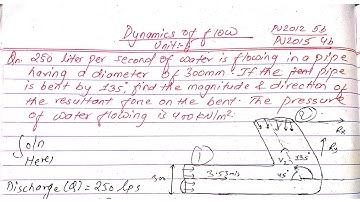 Dynamics of flow
Unit:-5
PU2012 5b
PU2015 4b
Qn. 250 liter per second of water is flowing in a pipe
having a diameter of 300mm. If the pipe
is bent by 135°, find the magnitude & direction of
the resultant force on the bent. The pressure
of water flowing is 400 kN/m².
Soln
Here,
Discharge (Q) = 250 lps
①
②
300
3.53m/s
V₂
135
45°
Rx
Ry